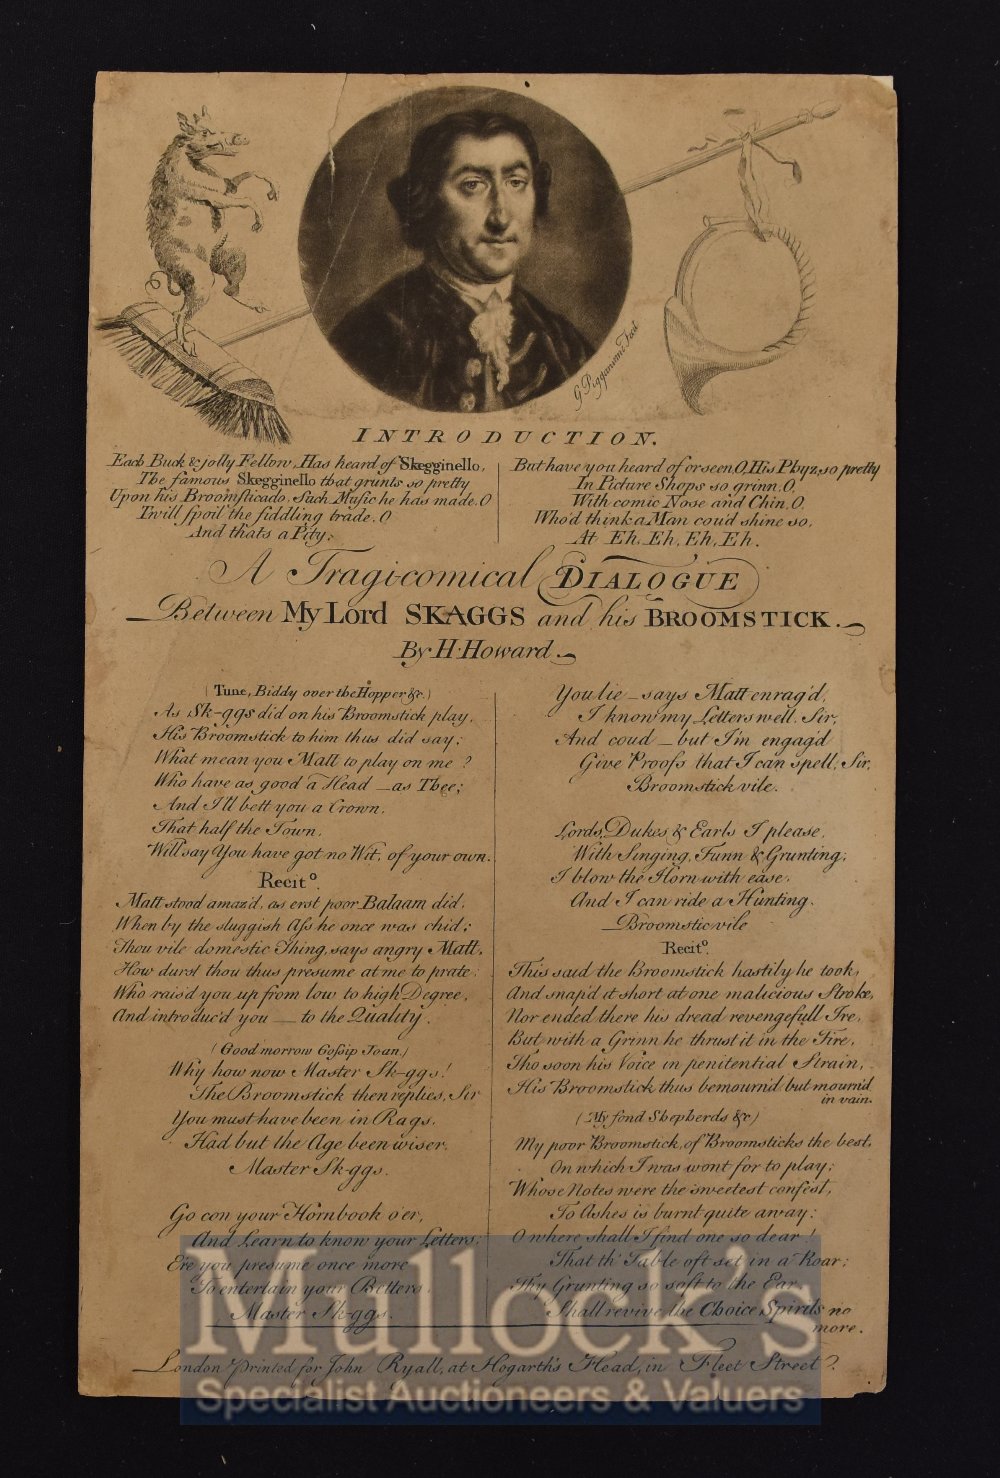 G Piggannne Fecit
INTRODUCTION.
Each Buck & jolly Fellow, Has heard of Skegginello,
The famous Skegginello that grunts so pretty
Upon his Broomsticado, Such Music he has made, O
Twill spoil the fiddling trade, O
And thats a Pity;
But have you heard of or seen, O, His Phyz, so pretty
In Picture Shops so grinn, O,
With comic Nose and Chin, O,
Who'd think a Man cou'd shine so,
At Eh, Eh, Eh, Eh.
A Tragi-comical DIALOGUE
Between My Lord SKAGGS and his BROOMSTICK.
By H. Howard.
(Tune, Biddy over the Hopper &c.)
As Sk-ggs did on his Broomstick play,
His Broomstick to him thus did say;
What mean you Matt to play on me?
Who have as good a Head — as Thee;
And I'll bett you a Crown,
That half the Town,
Will say You have got no Wit, of your own.
Recit°.
Matt stood amaz'd, as erst poor Balaam did,
When by the sluggish Ass he once was chid;
Thou vile domestic Thing, says angry Matt,
How durst thou thus presume at me to prate;
Who rais'd you up from low to high Degree,
And introduc'd you — to the Quality.
(Good morrow Gossip Joan.)
Why how now Master Sk-ggs!
The Broomstick then replies, Sir
You must have been in Rags,
Had but the Age been wiser,
Master Sk-ggs.
Go con your Hornbook o'er,
And Learn to know your Letters;
E're you presume once more
To entertain your Betters,
Master Sk-ggs.
You lie — says Matt enrag'd,
I know my Letters well, Sir,
And coud — but I'm engag'd
Give Proofs that I can spell, Sir,
Broomstick vile.
Lords, Dukes & Earls I please,
With Singing, Funn & Grunting;
I blow the Horn with ease,
And I can ride a Hunting.
Broomstic vile
Recit°.
This said the Broomstick hastily he took,
And snap'd it short at one malicious Stroke,
Nor ended there his dread revengefull Ire,
But with a Grinn he thrust it in the Fire,
Tho soon his Voice in penitential Strain,
His Broomstick thus bemourn'd but mourn'd
in vain.
(My fond Shepherds &c)
My poor Broomstick, of Broomsticks the best,
On which I was wont for to play;
Whose Notes were the sweetest confest,
To Ashes is burnt quite away:
O where shall I find one so dear!
That th' Table oft set in a Roar;
Thy Grunting so soft to the Ear
Shall revive the Choice Spirits no
more.
London printed for John Ryall, at Hogarth's Head, in Fleet Street.
Mullock's
Specialist Auctioneers & Valuers